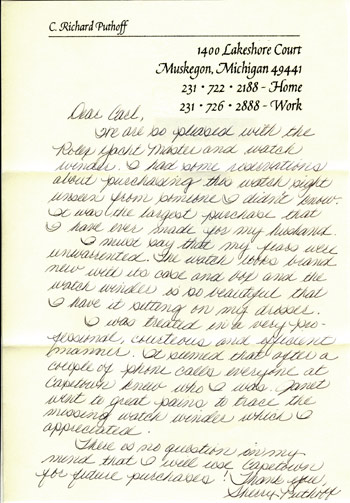 C. Richard Puthoff
1400 Lakeshore Court
Muskegon, Michigan 49441
231 • 722 • 2188 - Home
231 • 726 • 2888 - Work
Dear Carl,
We are so pleased with the
Rolex Yacht Master and watch
winder. I had some reservations
about purchasing this watch sight
unseen from someone I didn't know.
It was the largest purchase that
I have ever made for my husband.
I must say that my fears were
unwarrented. The watch looks brand
new with its case and box and the
watch winder is so beautiful that
I have it sitting on my dresser.
I was treated in a very pro-
fessional, courteous and efficient
manner. It seemed that after a
couple of phone calls everyone at
Capetown knew who I was. Janet
went to great pains to trace the
missing watch winder which I
appreciated.
There is no question in my
mind that I will use Capetown
for future purchases! Thank you,
Sherry Puthoff